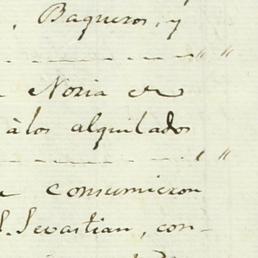 , Baqueros, y
" "
Noria
àlos alquilados
" "
consumieron
Sevastian, con-